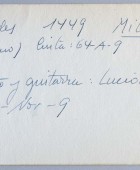 les 1449 Mil
no) Cinta: 64-A-9
o y guitarra: Lucio
Vox-9